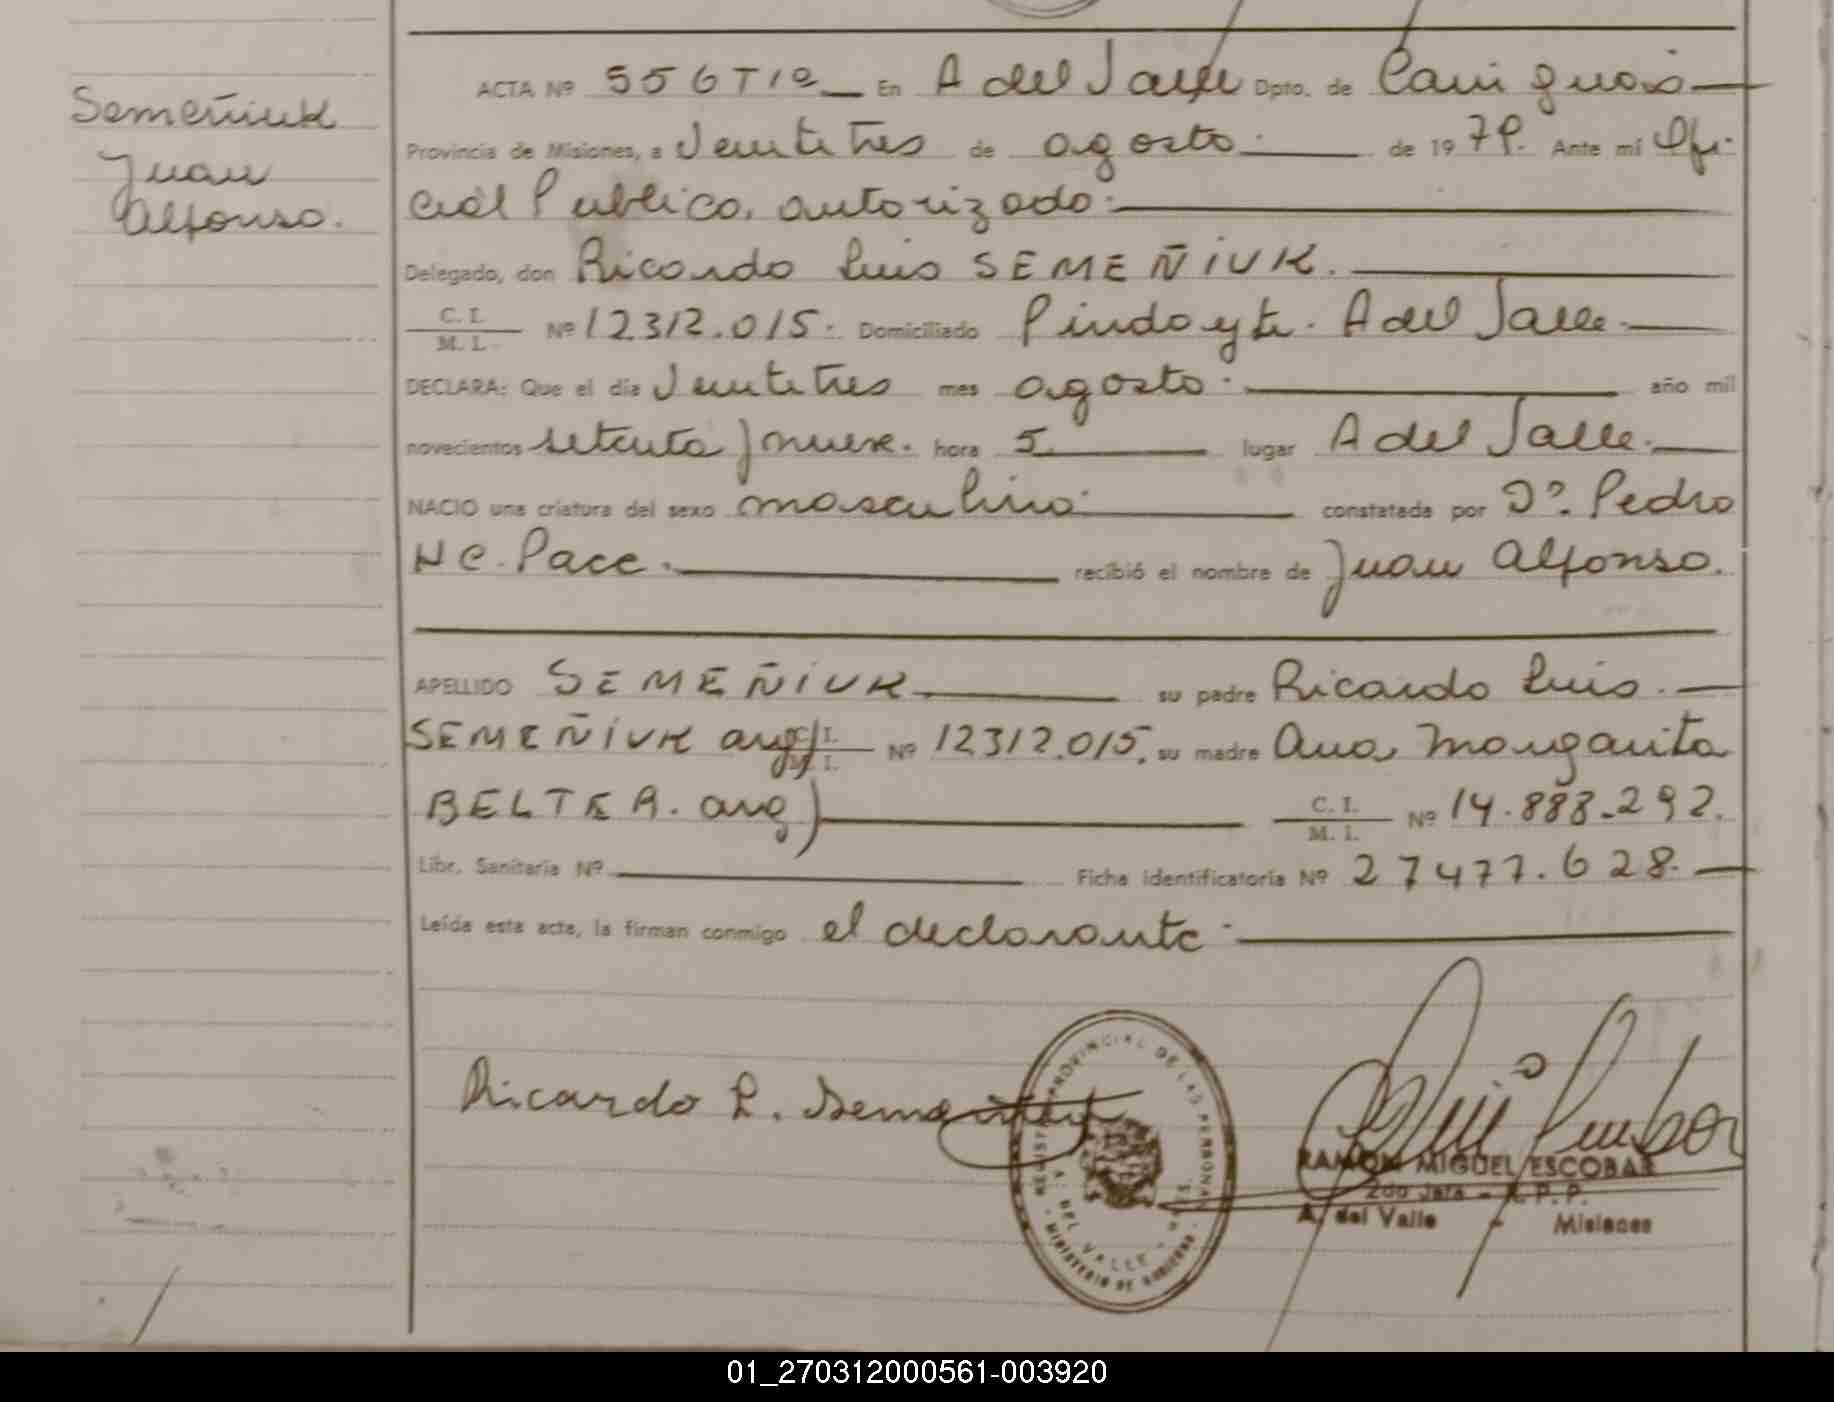 Semeñiuk
Juan
Alfonso.
ACTA Nº 556 Tº 1º En A del Valle Dpto. de Cainguás
Provincia de Misiones, a Veintitres de agosto de 1979. Ante mi Ofi-
cial Publico, autorizado.
Delegado, don Ricardo Luis SEMEÑiUK.
C. I.
M. I. Nº 12312.015. Domiciliado Pindoyti. A del Valle.
DECLARA: Que el día Veintitres mes agosto año mil
novecientos setenta y nueve. hora 5 lugar A del Valle.
NACIO una criatura del sexo masculino constatada por Dº. Pedro
Pace. recibió el nombre de Juan Alfonso.
APELLIDO SEMEÑiUK su padre Ricardo Luis
SEMEÑiUK arg) C. I. M. I. Nº 12312.015, su madre Ana Margarita
BELTEA. arg) C. I. M. I. Nº 14.888.292.
Libr. Sanitaria Nº Ficha identificatoria Nº 27477.628.
Leída esta acta, la firman conmigo el declarante
Ricardo L.
REGISTRO PROVINCIAL DE LAS PERSONAS
A. DEL VALLE - MNES.
MINISTERIO DE GOBIERNO
RAMON MIGUEL ESCOBAR
2do Jefe - R. P. P.
A. del Valle - Misiones
01_270312000561-003920